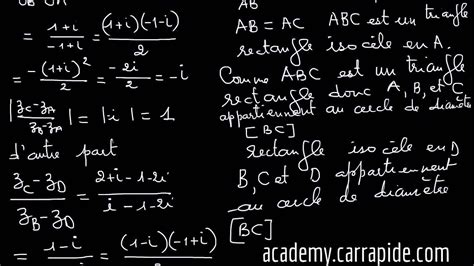 = (1+i)/(-1+i) = (1+i)(-1-i)/2
= -(1+i)²/2 = -2i/2 = -i
|(z_C-z_A)/(z_B-z_A)| = |-i| = 1
d'autre part
(z_C-z_D)/(z_B-z_D) = (2+i-1-2i)/(i-1-2i)
= (1-i)/ = (1-i)(-1+i)/
AB
AB = AC ABC est un triangle
rectangle isocèle en A.
Comme ABC est un triangle
rectangle donc A, B, et C
appartiennent au cercle de diamètre
[BC]
rectangle isocèle en D
B, C et D appartiennent
au cercle de diamètre
[BC]
academy.carrapide.com